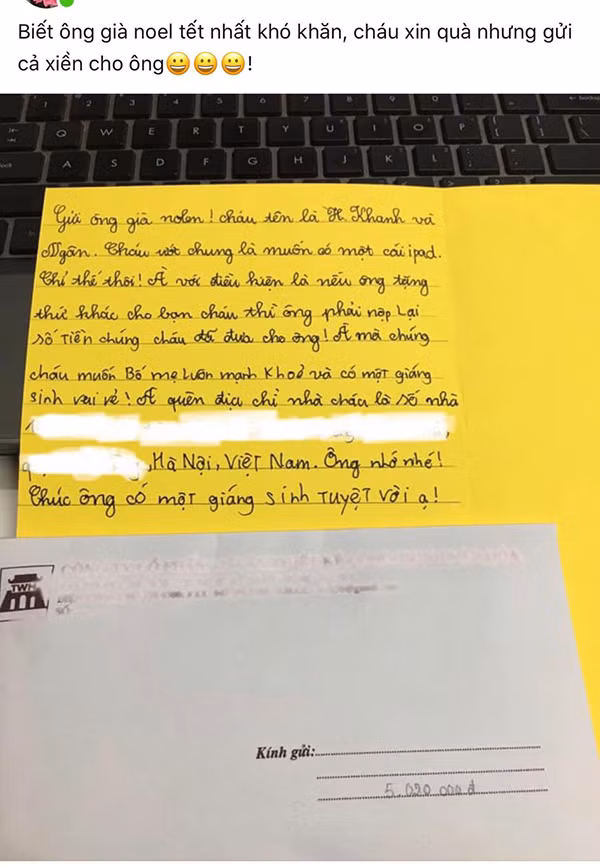 Biết ông già noel tết nhất khó khăn, cháu xin quà nhưng gửi
cả xiền cho ông😀😀😀!
Gửi ông già nolen! cháu tên là H. Khanh và
Ngân. Cháu ước chung là muốn có một cái ipad.
Chỉ thế thôi! À với điều kiện là nếu ông tặng
thứ khác cho bọn cháu thì ông phải nộp Lại
số tiền chúng cháu đã đưa cho ông! À mà chúng
cháu muốn Bố mẹ luôn mạnh khoẻ và có một giáng
sinh vui vẻ! À quên địa chỉ nhà cháu là số nhà
, Hà Nội, Việt Nam. Ông nhớ nhé!
Chúc ông có một giáng sinh tuyệt vời ạ!
TWH
Kính gửi:
5.020 000đ